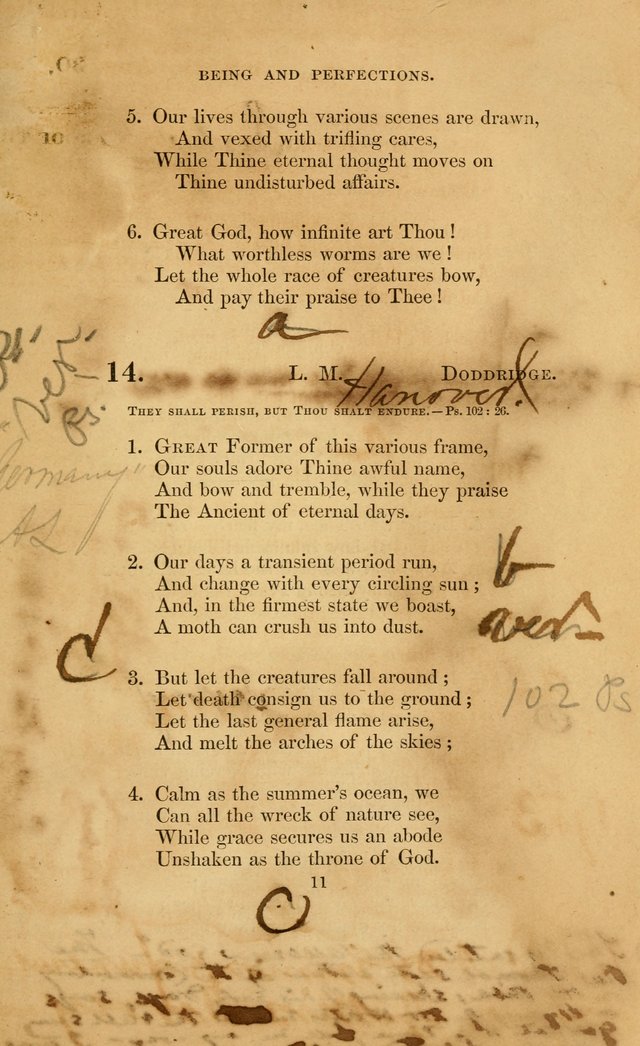 BEING AND PERFECTIONS.
5. Our lives through various scenes are drawn,
And vexed with trifling cares,
While Thine eternal thought moves on
Thine undisturbed affairs.
6. Great God, how infinite art Thou !
What worthless worms are we !
Let the whole race of creatures bow,
And pay their praise to Thee !
a
14. L. M. DODDRIDGE.
Hanover.
THEY SHALL PERISH, BUT THOU SHALT ENDURE.—Ps. 102 : 26.
1. GREAT Former of this various frame,
Our souls adore Thine awful name,
And bow and tremble, while they praise
The Ancient of eternal days.
Germany"
2. Our days a transient period run,
And change with every circling sun ;
And, in the firmest state we boast,
A moth can crush us into dust.
b
d
3. But let the creatures fall around ;
Let death consign us to the ground ;
Let the last general flame arise,
And melt the arches of the skies ;
102 Ps
4. Calm as the summer's ocean, we
Can all the wreck of nature see,
While grace secures us an abode
Unshaken as the throne of God.
11
C